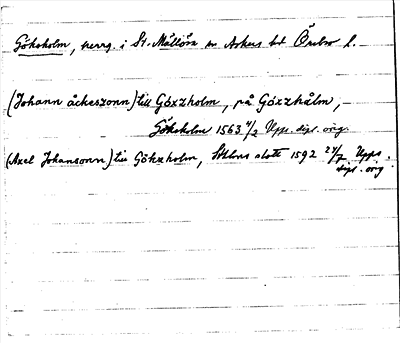 Göksholm, herrg. i St. Mellösa sn Askers hd Örebro l.
(Johann åckeszonn) till Göxzholm, på Göxzhålm,
Göksholm 1563 4/2 Upps. dipl. orig.
(Axel Johansonn) till Gökxholm, Sthlms slott 1592 24/7 Upps.
dipl. orig.